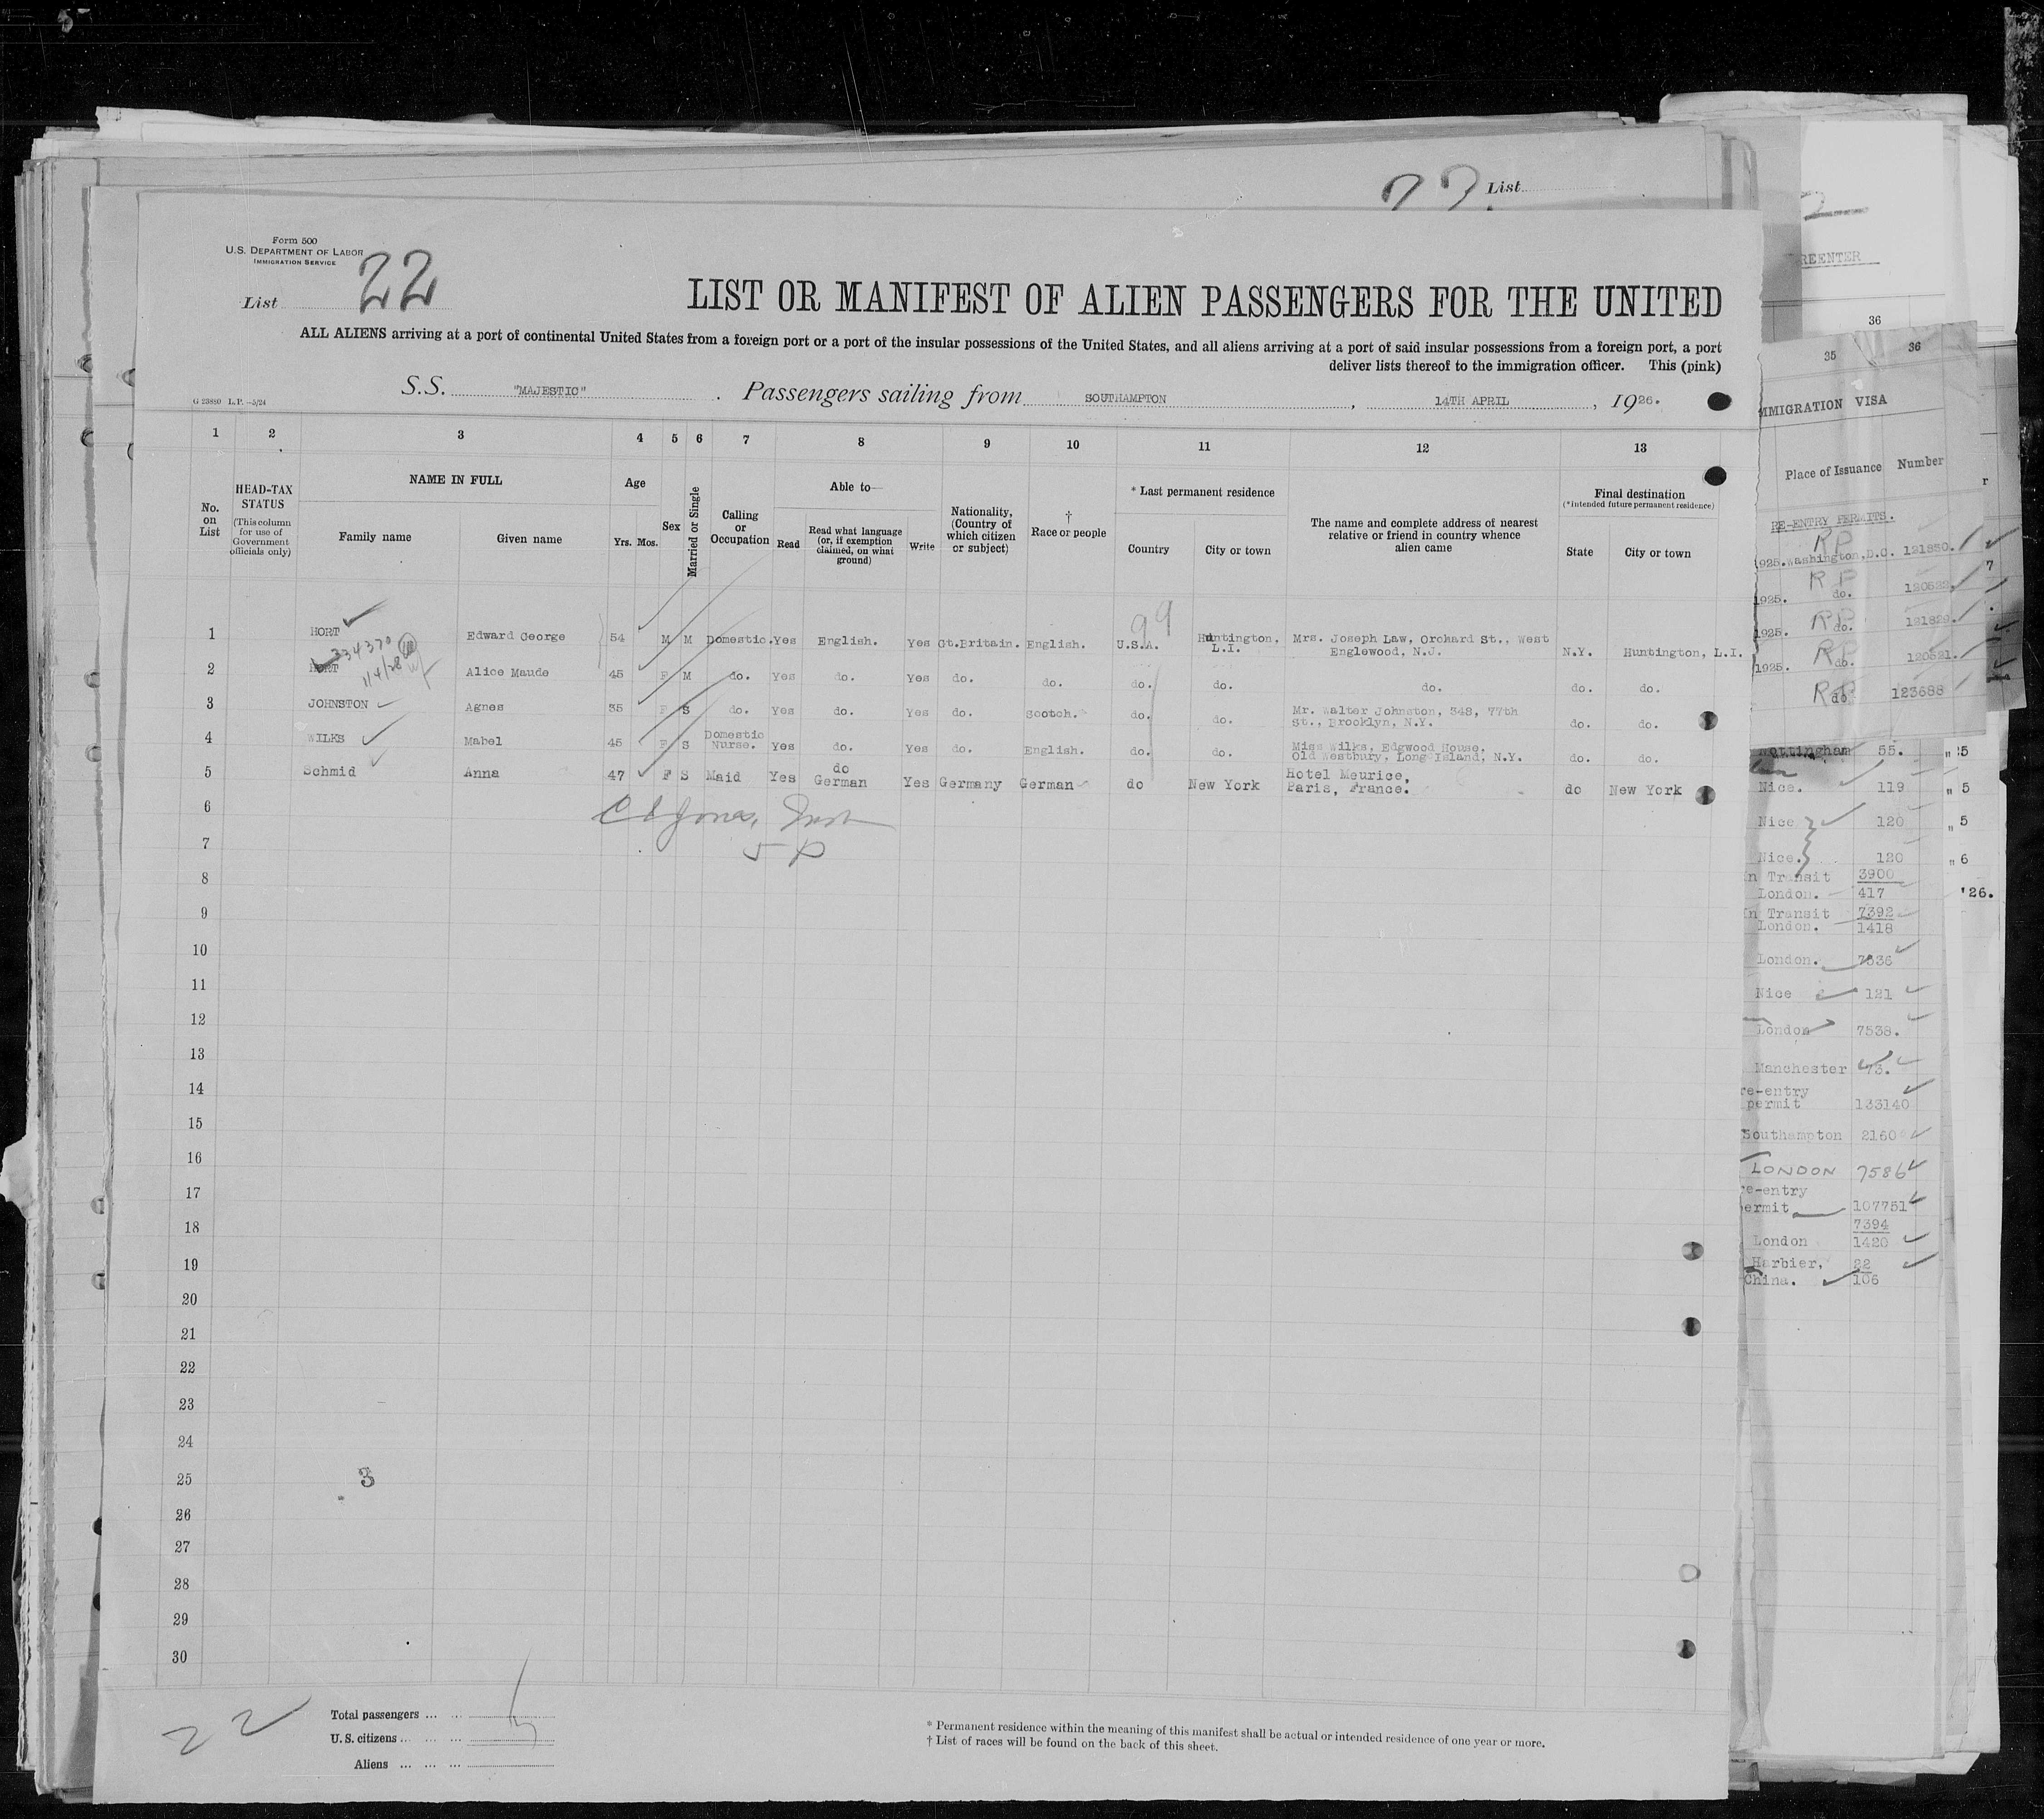 List
Form 500
U.S. DEPARTMENT OF LABOR
IMMIGRATION SERVICE
List 22
LIST OR MANIFEST OF ALIEN PASSENGERS FOR THE UNITED
ALL ALIENS arriving at a port of continental United States from a foreign port or a port of the insular possessions of the United States, and all aliens arriving at a port of said insular possessions from a foreign port, a port
deliver lists thereof to the immigration officer. This (pink)
S.S. "MAJESTIC" . Passengers sailing from SOUTHAMPTON , 14TH APRIL , 1926.
G 23880 L.P.—5/24
1 2 3 4 5 6 7 8 9 10 11 12 13
No. on List
HEAD-TAX STATUS
(This column for use of Government officials only)
NAME IN FULL
Family name
Given name
Age
Yrs. Mos.
Sex
Married or Single
Calling or Occupation
Able to—
Read
Read what language (or, if exemption claimed, on what ground)
Write
Nationality, (Country of which citizen or subject)
† Race or people
* Last permanent residence
Country
City or town
The name and complete address of nearest relative or friend in country whence alien came
Final destination
(*Intended future permanent residence)
State
City or town
99
1 HORT Edward George 54 M M Domestic. Yes English. Yes Gt.Britain. English. U.S.A. Huntington, L.I. Mrs. Joseph Law, Orchard St., West Englewood, N.J. N.Y. Huntington, L.I.
334370
11/4/28
2 HORT Alice Maude 45 F M do. Yes do. Yes do. do. do. do. do. do. do.
3 JOHNSTON Agnes 35 F S do. Yes do. Yes do. Scotch. do. do. Mr. Walter Johnston, 348, 77th St., Brooklyn, N.Y. do. do.
4 WILKS Mabel 45 F S Domestic Nurse. Yes do. Yes do. English. do. do. Miss Wilks, Edgwood House, Old Westbury, Long Island, N.Y. do. do.
5 Schmid Anna 47 F S Maid Yes do German Yes Germany German do New York Hotel Meurice, Paris, France. do New York
6
7
8
9
10
11
12
13
14
15
16
17
18
19
20
21
22
23
24
25 3
26
27
28
29
30
22
Total passengers ... ... 5
U.S. citizens ... ... ...
Aliens ... ... ...
* Permanent residence within the meaning of this manifest shall be actual or intended residence of one year or more.
† List of races will be found on the back of this sheet.
REENTER
36
35 36
IMMIGRATION VISA
Place of Issuance Number
RE-ENTRY PERMITS.
RP
1925. Washington, D.C. 121830.
RP
1925. do. 120522.
RP
1925. do. 121829.
RP
1925. do. 120521.
RP
do. 123688
Nottingham 55. " 5
Nice. 119 " 5
Nice 120 " 5
Nice. 120 " 6
In Transit 3900
London. 417 '26.
In Transit 7392
London. 1418
London. 7536
Nice 121
London 7538.
Manchester 73.
re-entry
permit 133140
Southampton 2160
LONDON 7586
re-entry
permit 107751
7394
London 1420
Harbier, 22
China. 106